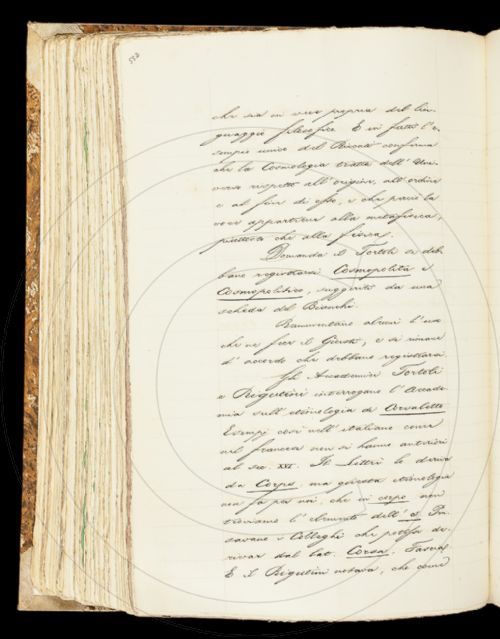 552
che sia in vece propria del lin-
guaggio filosofico. E in fatti l'e-
sempio unico del conferma
che la Cosmologia tratta dell'Uni-
verso rispetto all'origine, all'ordine
e al fine di esso, e che perciò la
voce appartiene alla metafisica,
piuttosto che alla fisica.
Domanda il Tortoli se deb-
bano registrarsi Cosmopolita e
Cosmopolitico, suggeriti da una
scheda del Bianchi.
Rammentano alcuni l'uso
che ne fece il Giusti, e si rimane
d'accordo che debbano registrarsi.
Gli Accademici Tortoli
e Rigutini interrogano l'Accade-
mia sull'etimologia di
Esempi così nell'italiano come
nel francese non si hanno anteriori
al sec. XVI. Il Littré la deriva
da Corps, ma questa etimologia
non fa per noi, che in corpo non
troviamo l'elemento dell's. Pen-
savano i Colleghi che potesse de-
rivar dal lat.
E il Rigutini notava, che come